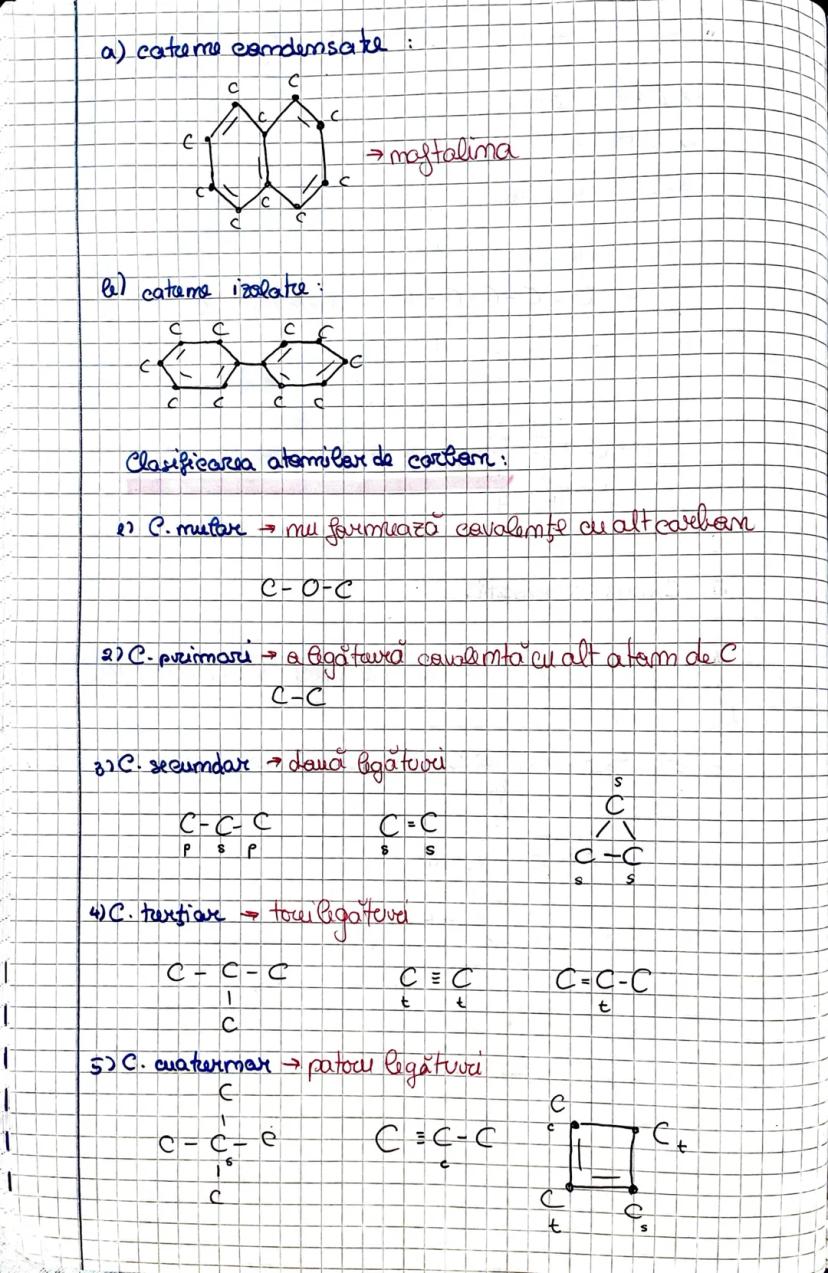 a) catene condensate :
C C
C C
C
→ naftalina
C C
C
C C
b) catene izolate :
C C C C
C C
C C C C
Clasificarea atomilor de carbon :
1) C. nular → nu formează covalențe cu alt carbon
C - O - C
2) C. primari → o legătură covalentă cu alt atom de C
C - C
3) C. secundar → două legături
s
C
C - C - C C = C
p s p s s
C - C
s s
4) C. terțiar → trei legături
C - C - C C ≡ C C = C - C
t t t
C
5) C. cuaternar → patru legături
C
C
C - C - C C ≡ C - C c C t
s c
C
C C
t s